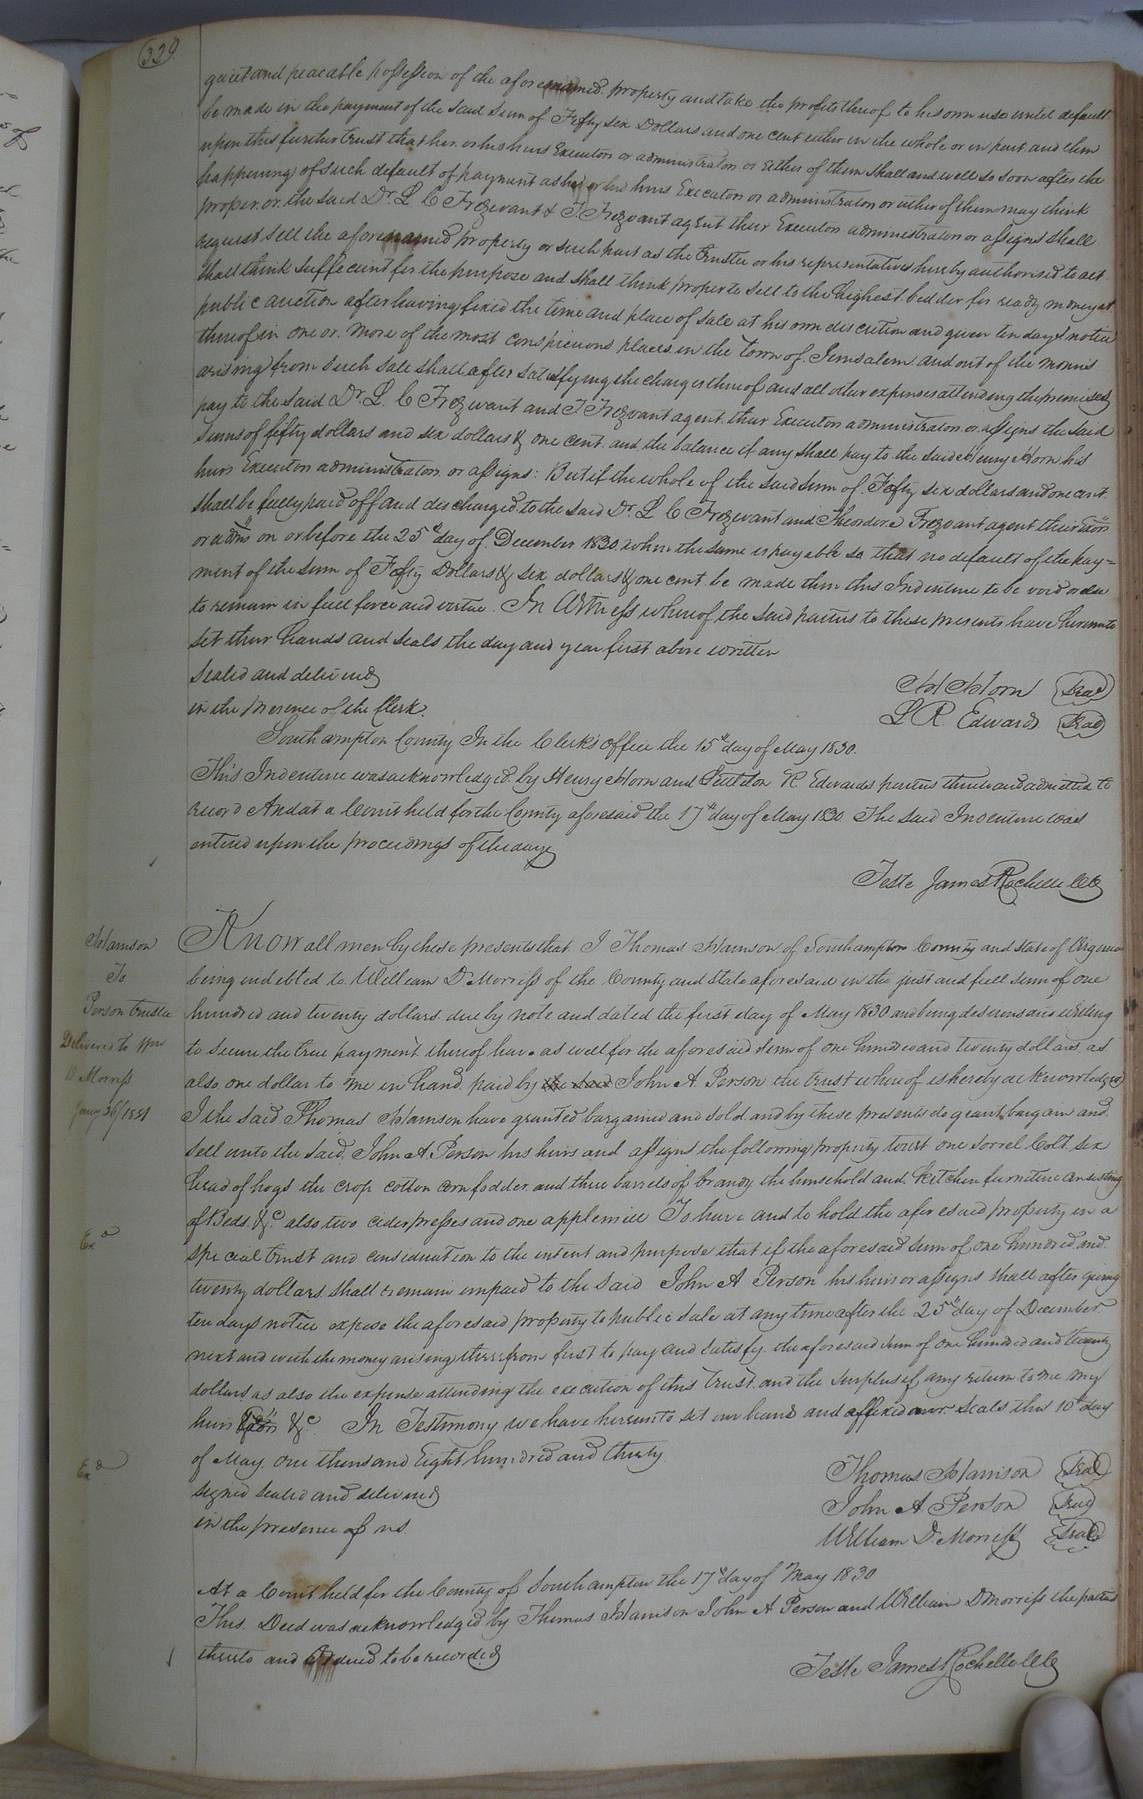 329
quiet and peacable possession of the aforenamed property and take the profits thereof to his own use until default
be made in the payment of the said Sum of Fifty six Dollars and one cent either in the whole or in part and then
upon this further trust that he or his heirs Executors or administrators or either of them shall and will so soon after the
happening of such default of payment as he or his heirs Executors or administrators or either of them may think
proper or the said Dr. L C Trezevant & T. Trezvant agent their Executors administrators or assigns shall
request sell the aforenamed property or such part as the trustee or his representatives hereby authorised to act
shall think sufficient for the purpose and shall think proper to sell to the highest bidder for ready money at
public auction after having fixed the time and place of sale at his own discretion and given ten days notice
thereof in one or more of the most conspicuous places in the town of Jerusalem and out of the monies
arising from such sale shall after satisfying the charges thereof and all other expenses attending the premises
pay to the said Dr. L. C Trezvant and T Trezvant agent their Executors administrators or assigns the said
sums of fifty dollars and six dollars & one cent and the balance if any shall pay to the said Henry Horn his
heirs Executors administrators or assigns: But if the whole of the said Sum of Fifty six dollars and one cent
shall be fully paid off and discharged to the said Dr. L C Trezvant and Theodore Trezvant agent their Exors
or adms on or before the 25th day of December 1830 when the same is payable so that no default of the pay=
ment of the sum of Fifty Dollars & six dollars & one cent be made then this Indenture to be void or else
to remain in full force and virtue. In Witness whereof the said parties to these presents have hereunto
set their hands and seals the day and year first above written
Sealed and delivered
in the presence of the Clerk.
H Horn Seal
L R Edwards Seal
Southampton County In the Clerk's office the 15th day of May 1830.
This Indenture was acknowledged by Henry Horn and R Edwards parties thereto and admitted to
record And at a Court held for the County aforesaid the 17th day of May 1830 The said Indenture was
entered upon the proceedings of the day
Teste James Rochelle ClC
Harrison
To
Person trustee
Delivered to Wm
D Morriss
Jany 26/1831
Know all men by these presents that I Thomas Harrison of Southampton County and state of Virginia
being indebted to William D Morriss of the County and State aforesaid in the just and full sum of one
hundred and twenty dollars due by note and dated the first day of May 1830 and being desirous and willing
to secure the true payment thereof have as well for the aforesaid sum of one hundred and twenty dollars as
also one dollar to me in hand paid by the said John A. Person the trust whereof is hereby acknowledged
I the said Thomas Harrison have granted bargained and sold and by these presents do grant bargain and
sell unto the said John A. Person his heirs and assigns the following property towit one sorrel Colt six
head of hogs the crop cotton corn fodder and three barrels of brandy the household and Kitchen furniture consisting
of Beds &c also two cider presses and one applemill To have and to hold the aforesaid property in a
Exd
special trust and consideration to the intent and purpose that if the aforesaid sum of one hundred and
twenty dollars shall remain unpaid to the said John A Person his heirs or assigns shall after giving
ten days notice expose the aforesaid property to public sale at any time after the 25th day of December
next and with the money arising therefrom first to pay and satisfy the aforesaid sum of one hundred and twenty
dollars as also the expense attending the execution of this trust and the surplus if any return to me my
heirs Exors &c In Testimony we have hereunto set our hands and affixed our seals this 10th day
Exd
of May one thousand Eight hundred and thirty
signed sealed and delivered
in the presence of us
Thomas Harrison Seal
John A Person Seal
William D Morriss Seal
At a Court held for the County of Southampton the 17th day of May 1830
This Deed was acknowledged by Thomas Harrison John A Person and William D Morriss the parties
thereto and Ordered to be recorded
Teste James Rochelle ClC